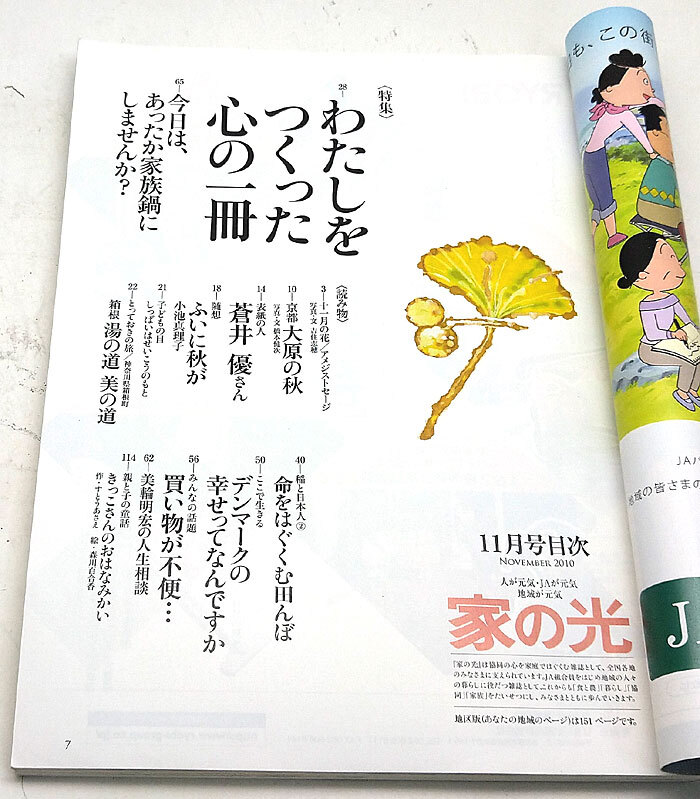 〈特集〉
28―わたしを
つくった
心の一冊
65―今日は、
あったか家族鍋に
しませんか?
〈読み物〉
3―十一月の花／アメジストセージ
写真・文 吉住志穂
10―京都 大原の秋
写真・文 橋本健次
14―表紙の人
蒼井 優さん
18―随想
ふいに秋が
小池真理子
21―子どもの目
しっぱいはせいこうのもと
22―とっておきの旅／神奈川県箱根町
箱根 湯の道 美の道
40―稲と日本人②
命をはぐくむ田んぼ
50―ここで生きる
デンマークの
幸せってなんですか
56―みんなの話題
買い物が不便…
62―美輪明宏の人生相談
114―親と子の童話
きっこさんのおはなみかい
作・すとうあさえ 絵・森川百合香
11月号目次
NOVEMBER 2010
人が元気・JAが元気
地域が元気
家の光
『家の光』は協同の心を家庭ではぐくむ雑誌として、全国各地
のみなさまに支えられています。JA組合員をはじめ地域の人々
の暮らしに役だつ雑誌として、これからも「食と農」「暮らし」「協
同」「家族」をたいせつにし、みなさまとともに歩んでいきます。
地区版(あなたの地域のページ)は151ページです。
7
も、この街
JAバ
地域の皆さまの
J